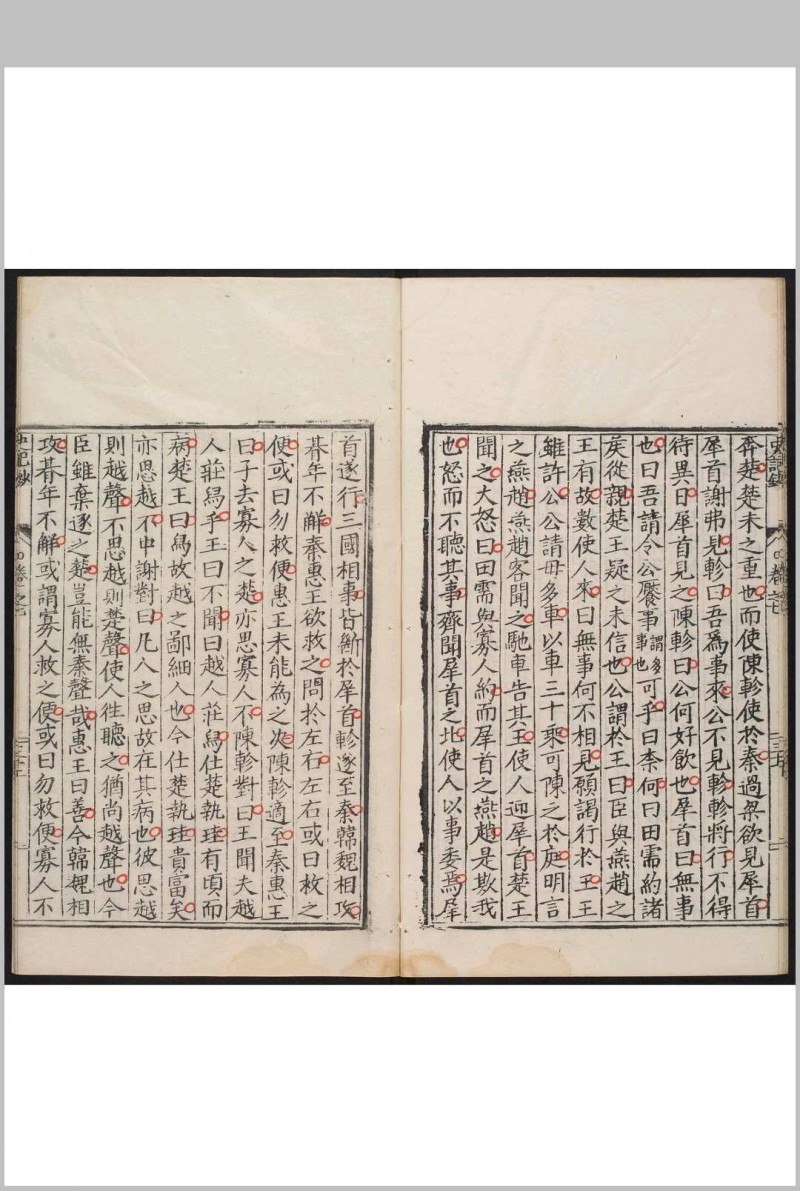 史記鈔 四卷之七 三十五
奔楚楚未之重也而使陳軫使於秦過梁欲見犀首
犀首謝弗見軫曰吾爲事來公不見軫軫將行不得
待異日犀首見之陳軫曰公何好飲也犀首曰無事
也曰吾請令公饜事謂多事也可乎曰柰何曰田需約諸
矦從親楚王疑之未信也公謂於王曰臣與燕趙之
王有故數使人來曰無事何不相見願謁行於王王
雖許公公請毋多車以車三十乘可陳之於庭明言
之燕趙燕趙客聞之馳車告其王使人迎犀首楚王
聞之大怒曰田需與寡人約而犀首之燕趙是欺我
也怒而不聽其事齊聞犀首之北使人以事委焉犀
首遂行三國相事皆斷於犀首軫遂至秦韓魏相攻
朞年不解秦惠王欲救之問於左右左右或曰救之
便或曰勿救便惠王未能為之决陳軫適至秦惠王
曰子去寡人之楚亦思寡人不陳軫對曰王聞夫越
人莊舄乎王曰不聞曰越人莊舄仕楚執珪有頃而
病楚王曰舄故越之鄙細人也今仕楚執珪貴富矣
亦思越不中謝對曰凡人之思故在其病也彼思越
則越聲不思越則楚聲使人徃聽之猶尚越聲也今
臣雖棄逐之楚豈能無秦聲哉惠王曰善今韓魏相
攻朞年不解或謂寡人救之便或曰勿救便寡人不
史記鈔 四卷之七